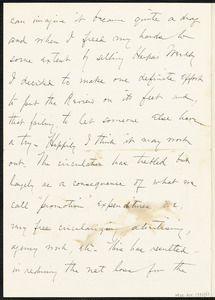 can imagine it became quite a drag
and when I freed my hands to
some extent by selling Harpers Weekly
I decided to make one definite effort
to put the Review on its feet and,
that failing to let someone else have
a try. Happily I think it may work
out. The circulation has trebled but
largely as a consequence of what we
call "promotion" expenditures or
my free circularizing, advertising,
agency work etc. This has resulted
in reducing the net loss for the